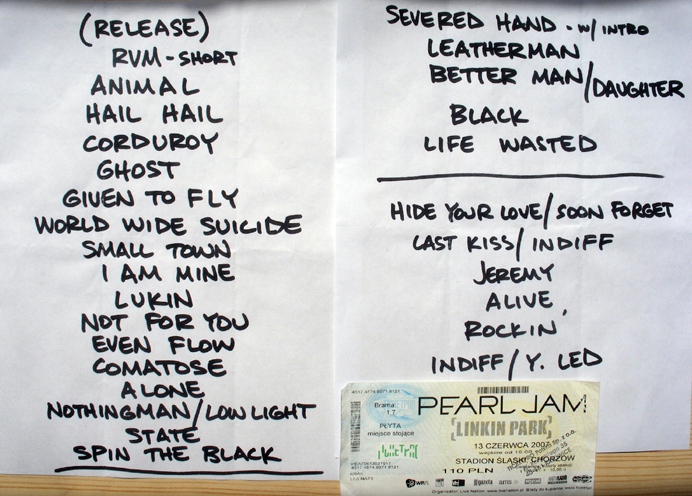 (RELEASE)
RVM - SHORT
ANIMAL
HAIL HAIL
CORDUROY
GHOST
GIVEN TO FLY
WORLD WIDE SUICIDE
SMALL TOWN
I AM MINE
LUKIN
NOT FOR YOU
EVEN FLOW
COMATOSE
ALONE
NOTHINGMAN/LOW LIGHT
STATE
SPIN THE BLACK
SEVERED HAND - W/ INTRO
LEATHERMAN
BETTER MAN/DAUGHTER
BLACK
LIFE WASTED
HIDE YOUR LOVE/SOON FORGET
LAST KISS/INDIFF
JEREMY
ALIVE
ROCKIN'
INDIFF/Y. LED
Brama
1.7
PŁYTA
miejsce stojące
PEARL JAM
LINKIN PARK
13 CZERWCA 2007
STADION ŚLĄSKI, CHORZÓW
110 PLN